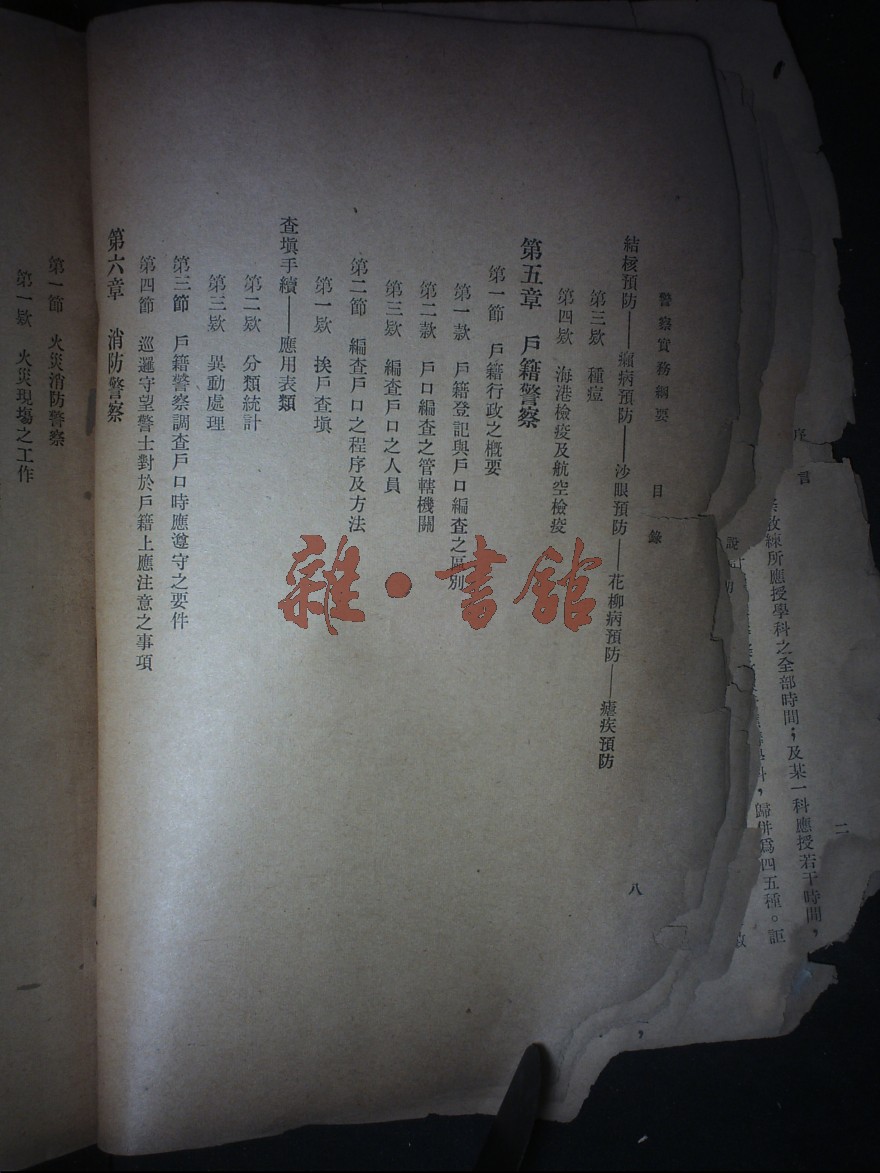 序言
二
㸃教練所應授學科之全部時間；及某一科應授若干時間，
學科，歸併爲四五種。詎
說明
警察實務綱要　目錄
八
結核預防——痲病預防——沙眼預防——花柳病預防——瘧疾預防
第三欵　種痘
第四欵　海港檢疫及航空檢疫
第五章　戶籍警察
第一節　戶籍行政之概要
第一欵　戶籍登記與戶口編查之區別
第二欵　戶口編查之管轄機關
第三欵　編查戶口之人員
第二節　編查戶口之程序及方法
第一欵　挨戶查塡
查塡手續——應用表類
第二欵　分類統計
第三欵　異動處理
第三節　戶籍警察調查戶口時應遵守之要件
第四節　巡邏守望警士對於戶籍上應注意之事項
第六章　消防警察
第一節　火災消防警察
第一欵　火災現塲之工作
雜·書館